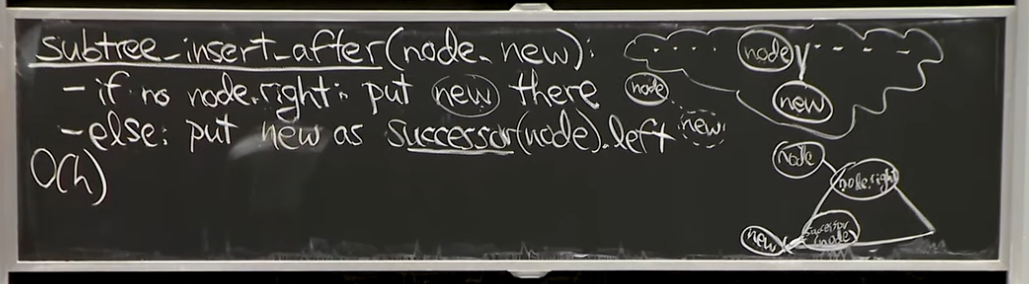 subtree_insert_after(node, new):
- if no node.right: put new there
- else: put new as successor(node).left
O(h)
node
new
node
new
node
node.right
successor(node)
new